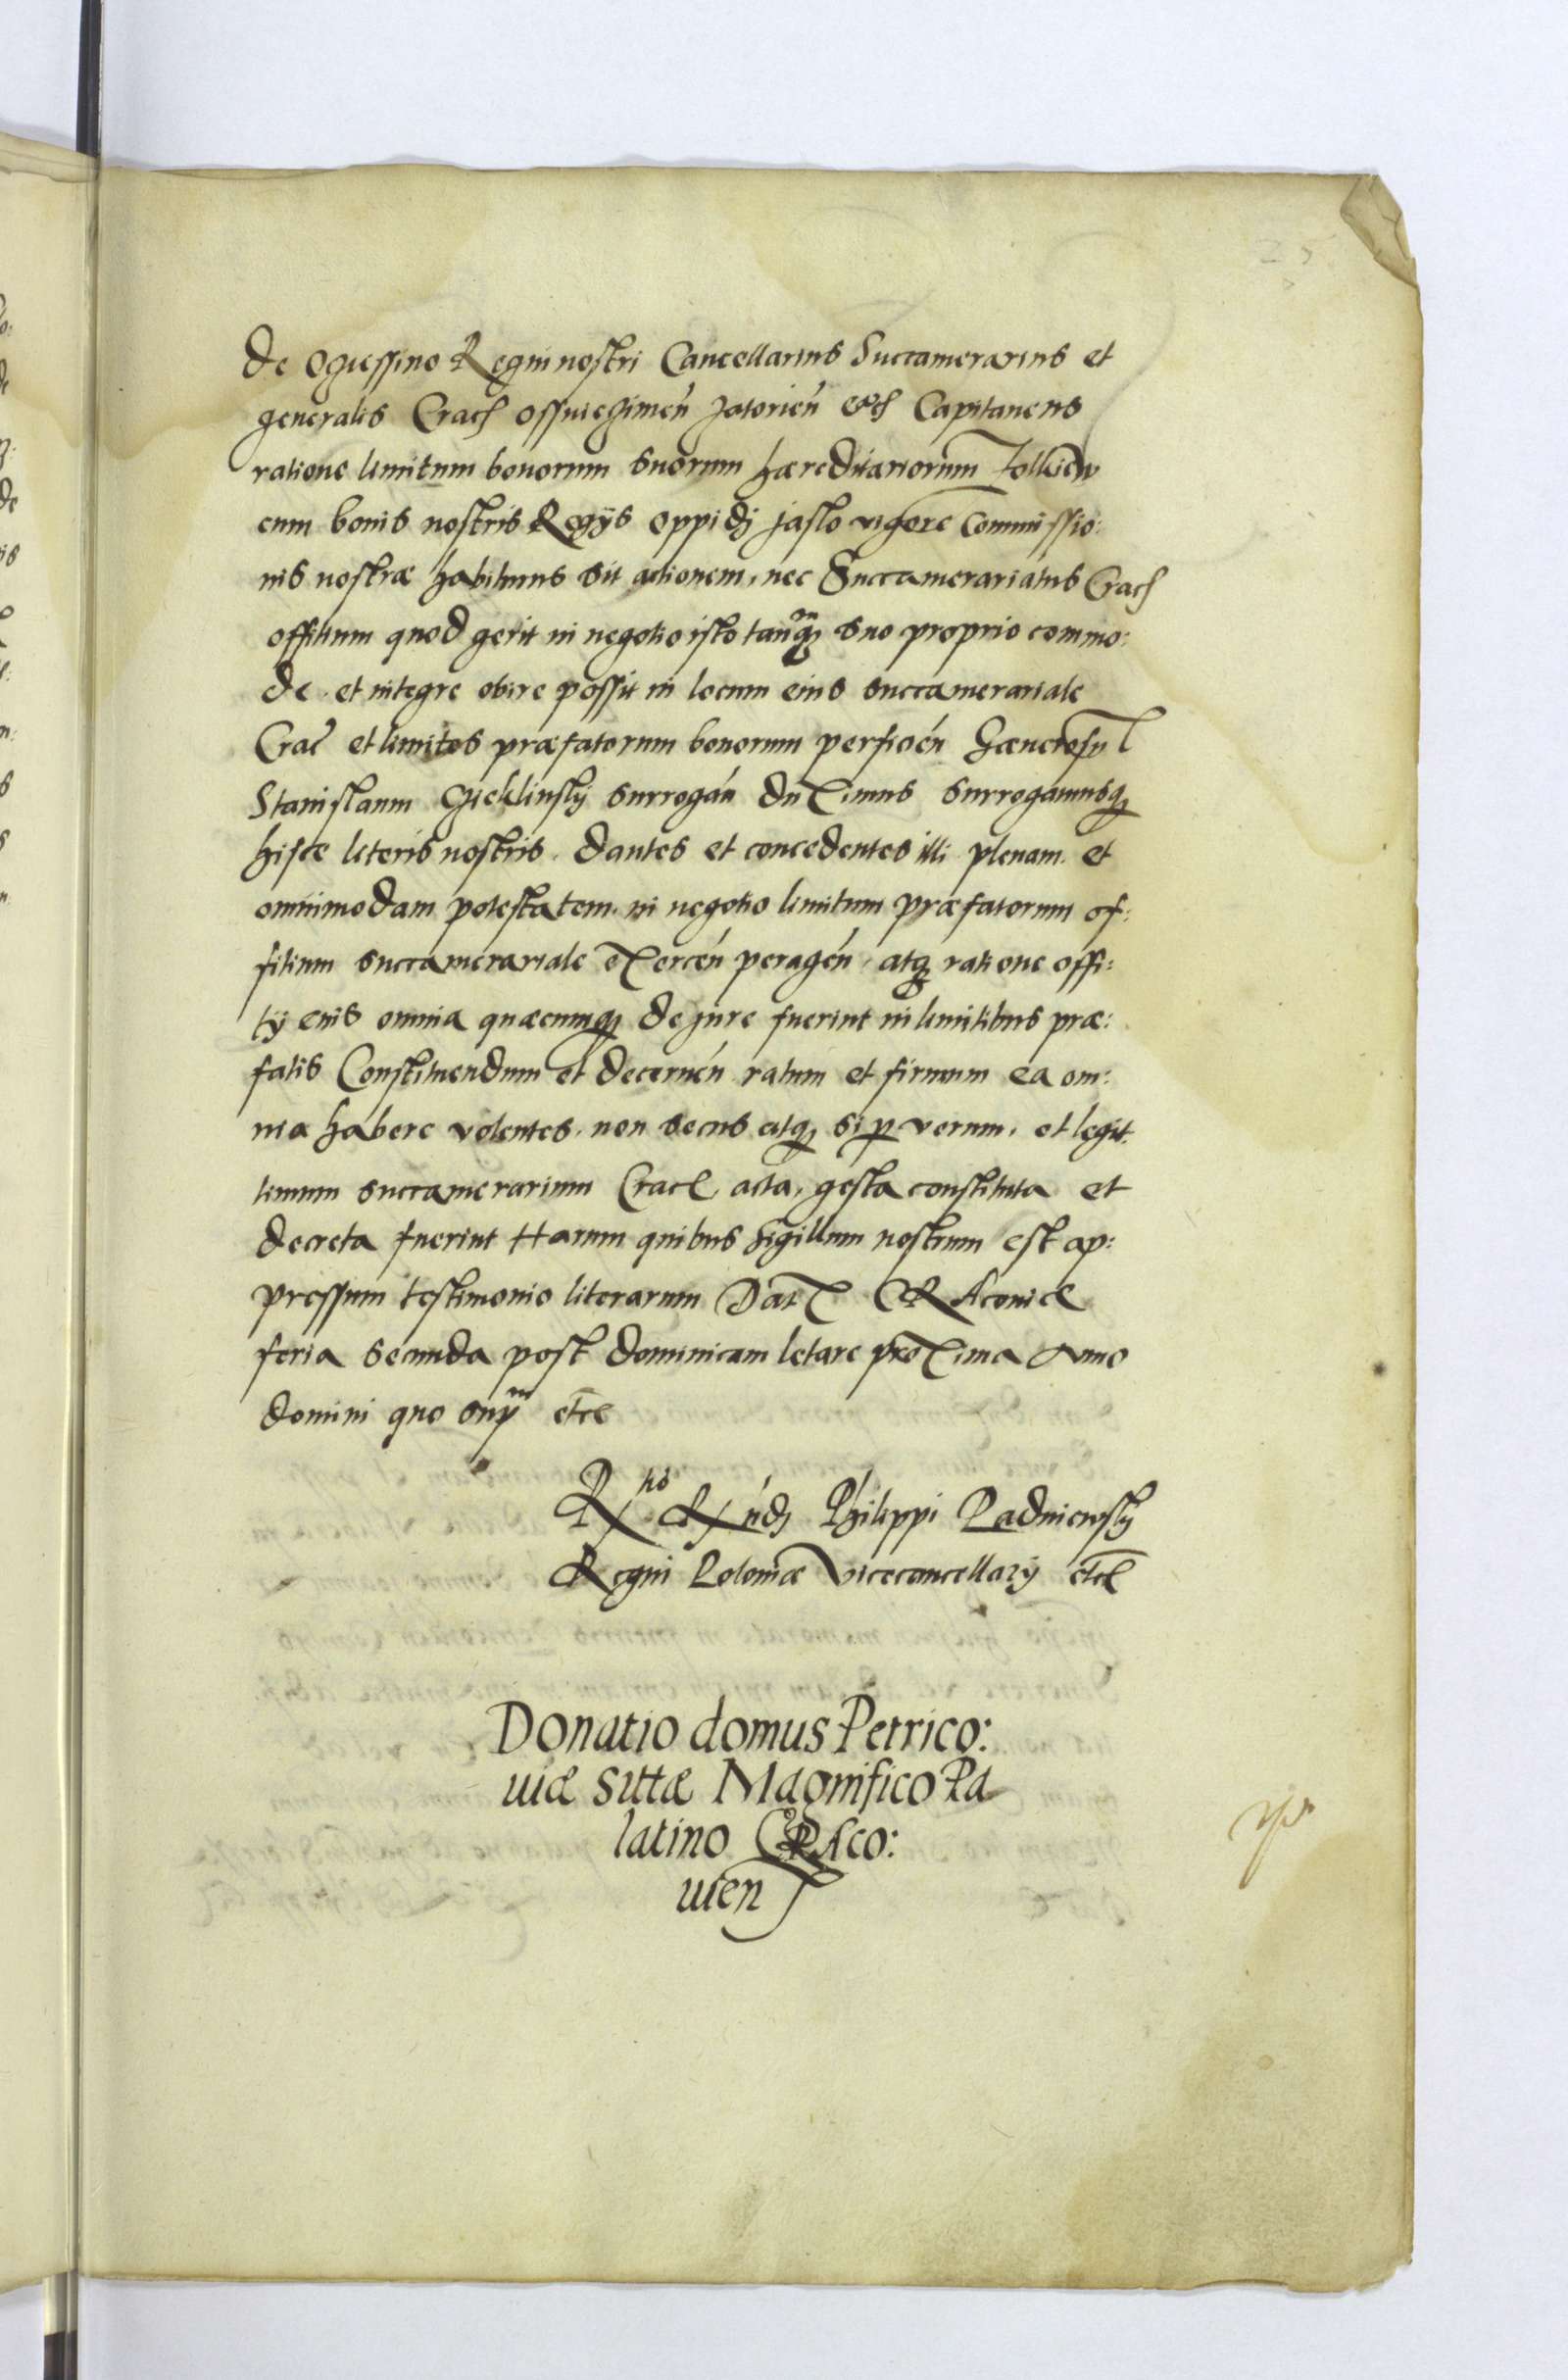 25
de Ogiessino Regni nostri Cancellarius Succamerarius et
generalis Crac Osswieczimeń Zatorień etc Capitaneus
ratione limitum bonorum suorum haereditariorum Tolkiew
cum bonis nostris Regÿs oppidj Jaslo vigore Commissio:
nis nostrae habiturus sit actionem, nec Succamerariatus Crac
offitium quod gerit in negotio isto tanqᷓ suo proprio commo:
de et integre obire possit in locum eius succamerariale
Crac et limites praefatorum bonorum perficień Generosum
Stanislaum Gieklinskÿ surrogań duximus surrogamusqȝ
hisce literis nostris. dantes et concedentes illi plenam et
omnimodam potestatem in negotio limitum praefatorum of:
fitium succamerariale exerceń perageń, atqȝ ratione offi:
tÿ eius omnia quaecumqȝ de jure fuerint in limitibus prae:
fatis Constituendum et decerneń ratum et firmum ea om:
nia habere volentes. non secus atqȝ si ꝑ verum, et legit:
timum succamerarium Crac acta, gesta constituta et
decreta fuerint Harum quibus sigillum nostrum est ap:
pressum testimonio literarum Dat CRAcouie
feria secunda post dominicam letare proxima Anno
domini quo supᵃ etc
Rᵗⁱᵒ Rńdj Philippi Padniewskÿ
Regni Poloniae Vicecancellarÿ etc
Donatio domus Petrico:
uiae sittae Magnifico Pa
latino CRAco:
uien